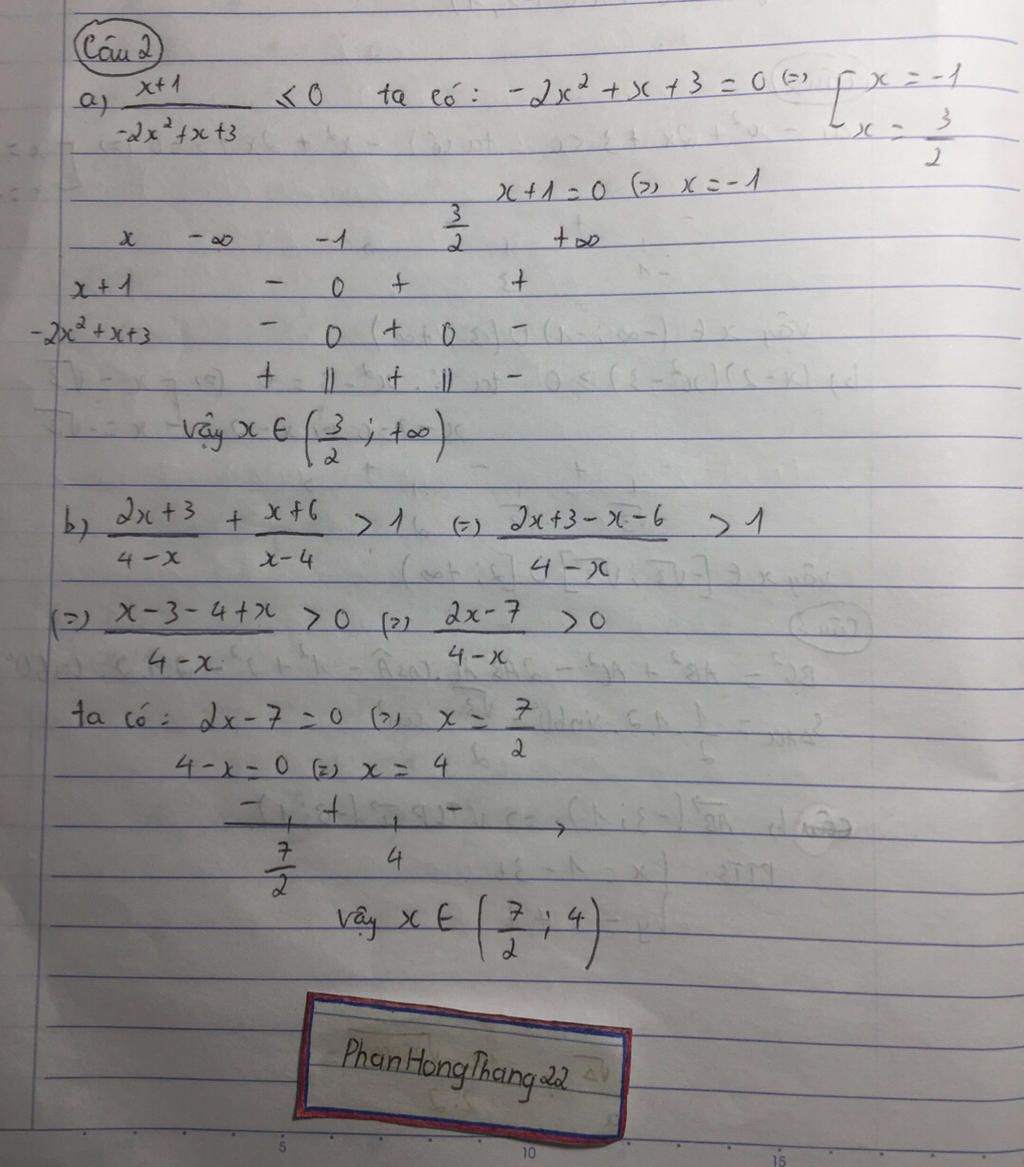 Câu 2
a) x+1 / -2x² + x + 3 ≤ 0 ta có: -2x² + x + 3 = 0 (=) [ x = -1
x = 3/2
x + 1 = 0 (=) x = -1
x -∞ -1 3/2 +∞
x + 1 - 0 + +
-2x² + x + 3 - 0 + 0 -
+ || + || -
Vậy x ∈ (3/2 ; +∞)
b) 2x + 3 / 4 - x + x + 6 / x - 4 > 1 (=) 2x + 3 - x - 6 / 4 - x > 1
(=) x - 3 - 4 + x / 4 - x > 0 (=) 2x - 7 / 4 - x > 0
ta có: 2x - 7 = 0 (=) x = 7/2
4 - x = 0 (=) x = 4
- + -
7/2 4
Vậy x ∈ (7/2 ; 4)
PhanHongThang22
5 10 15